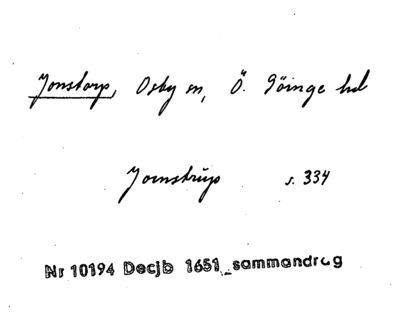 Jonstorp, Osby sn, Ö. Göinge hd
Jomstrup s. 334
Nr 10194 Decjb 1651 sammandrag